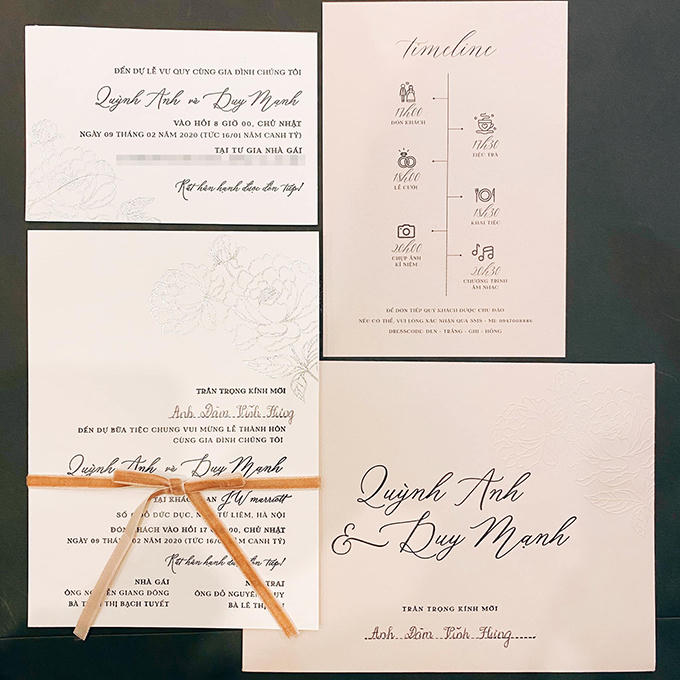 ĐẾN DỰ LỄ VU QUY CÙNG GIA ĐÌNH CHÚNG TÔI
Quỳnh Anh và Duy Mạnh
VÀO HỒI 8 GIỜ 00, CHỦ NHẬT
NGÀY 09 THÁNG 02 NĂM 2020 (TỨC 16/01 NĂM CANH TÝ)
TẠI TƯ GIA NHÀ GÁI
Rất hân hạnh được đón tiếp!
timeline
17h00
ĐÓN KHÁCH
17h30
TIỆC TRÀ
18h00
LỄ CƯỚI
18h30
KHAI TIỆC
20h00
CHỤP ẢNH
KỈ NIỆM
20h30
CHƯƠNG TRÌNH
ÂM NHẠC
ĐỂ ĐÓN TIẾP QUÝ KHÁCH ĐƯỢC CHU ĐÁO
NẾU CÓ THỂ, VUI LÒNG XÁC NHẬN QUA SMS - MI:
DRESSCODE: ĐEN - TRẮNG - GHI - HỒNG
TRÂN TRỌNG KÍNH MỜI
Anh Đàm Vĩnh Hưng
ĐẾN DỰ BỮA TIỆC CHUNG VUI MỪNG LỄ THÀNH HÔN
CÙNG GIA ĐÌNH CHÚNG TÔI
Quỳnh Anh và Duy Mạnh
TẠI KHÁCH AN JW marriott
SỐ ĐỖ ĐỨC DỤC, TỪ LIÊM, HÀ NỘI
ĐÓN KHÁCH VÀO HỒI 17 00, CHỦ NHẬT
NGÀY 09 THÁNG 02 NĂM 2020 (TỨC 16/ CANH TÝ)
Rất hân hạnh được đón tiếp!
NHÀ GÁI
ÔNG NGUYỄN GIANG ĐÔNG
BÀ THỊ BẠCH TUYẾT
NHÀ TRAI
ÔNG ĐỖ NGUYÊN DUY
BÀ LÊ THỊ
Quỳnh Anh
& Duy Mạnh
TRÂN TRỌNG KÍNH MỜI
Anh Đàm Vĩnh Hưng